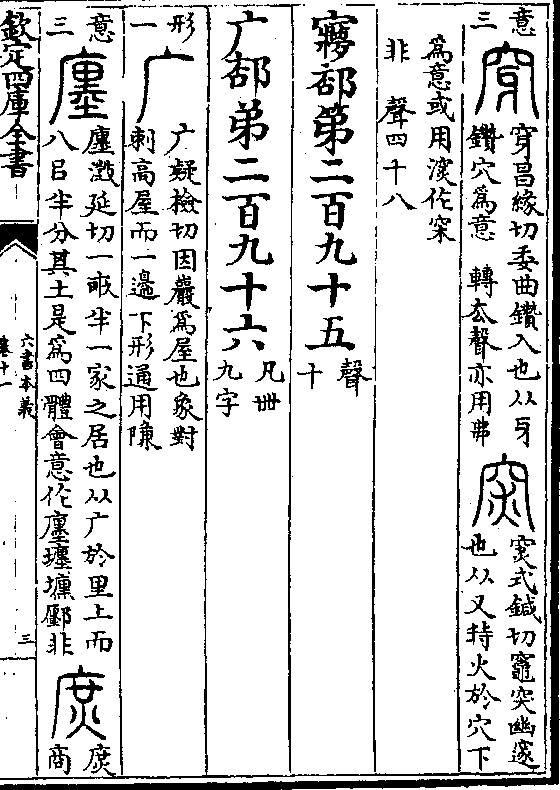 意三
穿
穿昌緣切委曲鑽入也从牙
鑽穴爲意 轉去聲亦用弗
穾
穾式鍼切竈突幽邃
也从又持火於穴下
爲意或用㴱作穼
非 聲四十八
㝱部第二百九十五
聲十
广部第二百九十六
凡卌九字
形一
广
广疑檢切因巖爲屋也象對
刺高屋而一邊下形通用隒
意三
㕓
㕓澂延切一畞半一家之居也从广於里上而
八㠯半分其土是爲四體會意作廛㙻壥鄽非
庶
庶商
欽定四庫全書
六書本義
卷十一
三